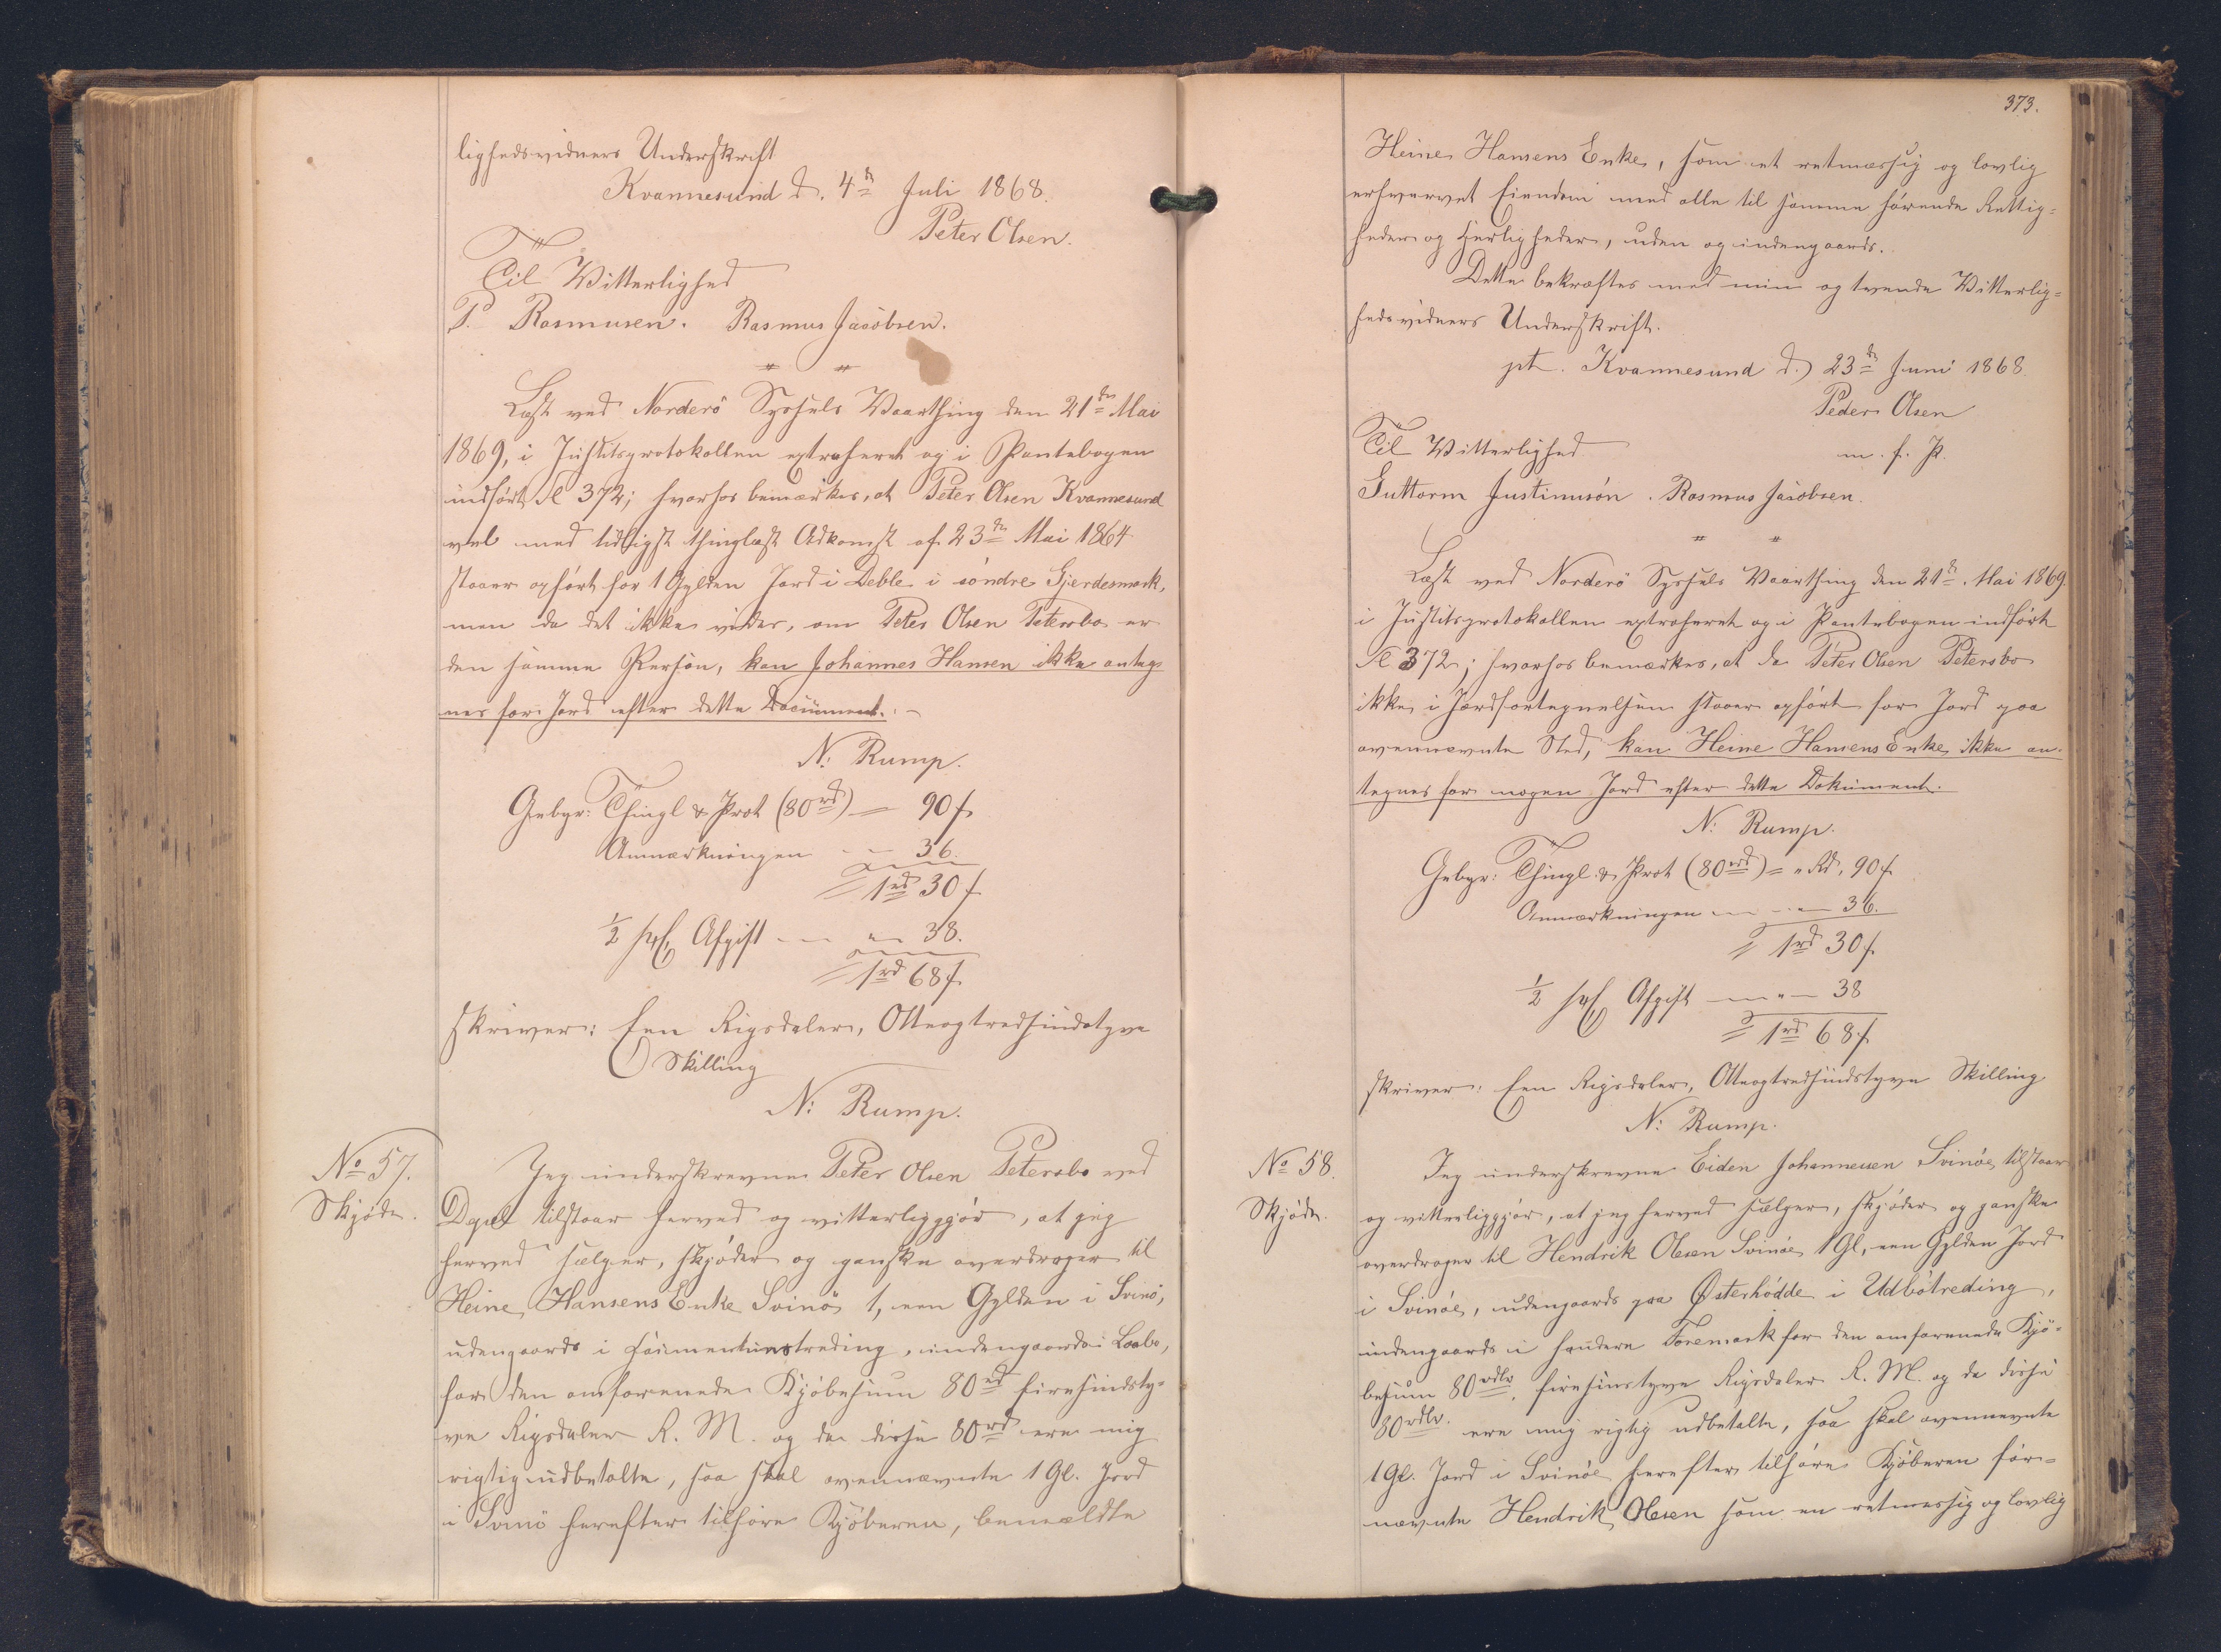 lighedsvidners Underskrift
Kvannesund d. 4de Juli 1868.
Peter Olsen.
Til Vitterlighed
P. Rasmusen. Rasmus Jacobsen.
" "
Læst ved Norderö Syssels Vaarthing den 21de Mai
1869, i Justitsprotokollen extraheret og i Pantebogen
indført Fl 372; hvorhos bemærkes, at Peter Olsen Kvannesund
vel med tidligst thinglæst Adkomst af 23de Mai 1864
staaer opført for 1 Gylden Jord i Deble i söndre Gjerdesmark,
men da det ikke vides, om Peter Olsen Petersbo er
den samme Person, kan Johannes Hansen ikke anteg-
nes for Jord efter dette Document. -
N: Rump.
Gebyr: Thingl & Prot (80rd) — 90 f
Anmærkningen — 36.
= 1rd 30 f
1/2 pCt Afgift — " — 38.
= 1rd 68 f
skriver: Een Rigsdaler, Otteogtredsindstyve
Skilling
N: Rump.
No 57.
Skjøde.
Jeg underskrevne Peter Olsen Petersbo ved
tilstaar herved og vitterliggjør, at jeg
herved sælger, skjøder og ganske overdrager til
Heine Hansens Enke Svinö 1, een Gylden i Svinö,
udengaards i , indengaards i Loabo,
for den omforenede Kjöbesum 80rd firesindsty-
ve Rigsdaler R. M. og da disse 80rd ere mig
rigtig udbetalte, saa skal ovennævnte 1 Gl. Jord
i Svinö herefter tilhøre Kjöberen, bemældte
373.
Heine Hansens Enke, som et retmæssig og lovlig
erhvervet Eiendom med alle til samme hørende Rettig-
heder og Herligheder, uden og indengaards.
Dette bekræftes med min og tvende Vitterlig-
hedsvidners Underskrift.
pt. Kvannesund d. 23de Juni 1868.
Peder Olsen
Til Vitterlighed m. f. P.
Guttorm Justinusön. Rasmus Jacobsen.
" "
Læst ved Norderö Syssels Vaarthing den 21de Mai 1869.
i Justitsprotokollen extraheret og i Pantebogen indført
Fl 372; hvorhos bemærkes, at da Peter Olsen Petersbo
ikke i Jordfortegnelsen staaer opført for Jord paa
ovennævnte Sted, kan Heine Hansens Enke ikke an-
tegnes for nogen Jord efter dette Dokument.
N: Rump.
Gebyr: Thingl. & Prot (80rd) = " Rd, 90 f
Anmærkningen — " — 36.
= 1rd 30 f.
1/2 pCt Afgift — " — 38
= 1rd 68 f
skriver: Een Rigsdaler, Otteogtredsindstyve Skilling
N: Rump.
No 58.
Skjøde.
Jeg underskrevne Eiden Johannesen Svinöe, tilstaar
og vitterliggjør, at jeg herved sælger, skjøder og ganske
overdrager til Hendrik Olesen Svinöe, 1 Gl, een Gylden Jord
i Svinöe, udengaards paa Østerhödde i Udbötreding,
indengaards i Toremark for den omforenede Kjö-
besum 80rdlr. firesinstyve Rigsdaler R. M. og da disse
80rdlr. ere mig rigtig udbetalte, saa skal ovennevnte
1 Gl. Jord i Svinöe herefter tilhøre Kjöberen før-
nævnte Hendrik Olesen som en retmæssig og lovlig